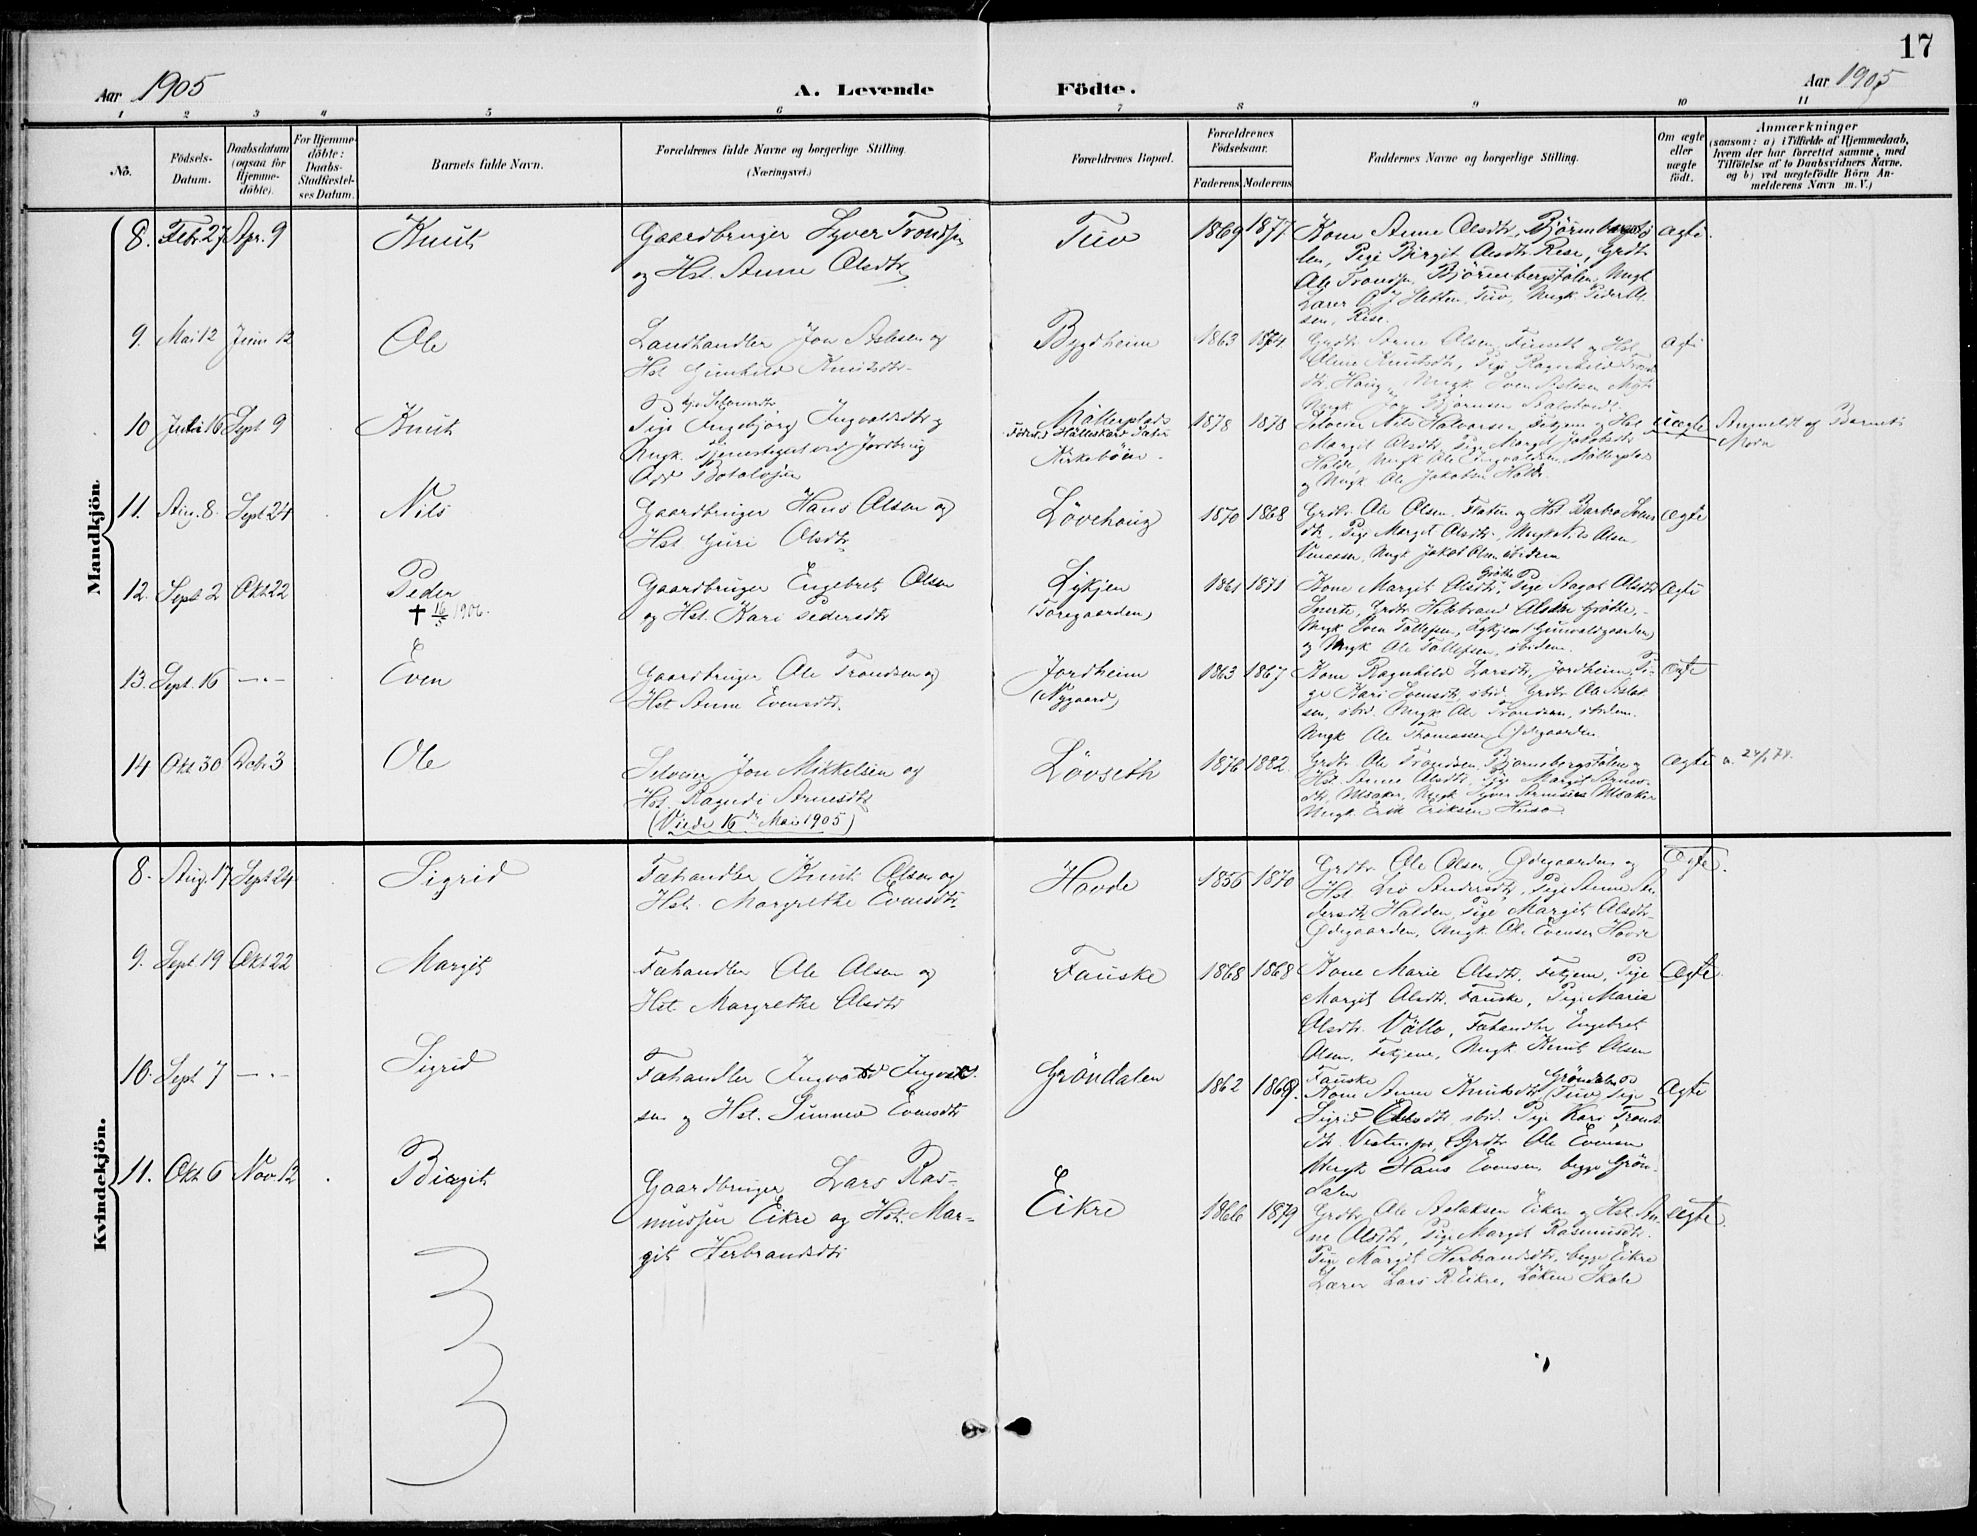 17
Aar 1905
A. Levende
Födte.
Aar 1905
1 2 3 4 5 6 7 8 9 10 11
No.
Födsels-
Datum.
Daabsdatum
(ogsaa for
Hjemme-
döbte).
For Hjemme-
döbte:
Daabs-
Stadfæstel-
ses Datum.
Barnets fulde Navn.
Forældrenes fulde Navne og borgerlige Stilling.
(Næringsvei.)
Forældrenes Bopæl.
Forældrenes
Födselsaar.
Faderens Moderens
Faddernes Navne og borgerlige Stilling.
Om ægte
eller
uægte
födt.
Anmærkninger
(saasom: a) i Tilfælde af Hjemmedaab,
hvem der har forrettet samme, med
Tilföielse af to Daabsvidners Navne.
og b) ved uægtefödte Börn An-
melderens Navn m. V.)
Mandkjön.
8. Febr. 27 Apr. 9
Knut
Gaardbruger Syver Trondsen
og Hst. Anne Olsdtr
Tuv
1869 1877
Kone Anne Olsdtr, Björnbergstö
len, Pige Birgit Olsdtr Rese, Grdbr
Ole Trondsen Björnbergstölen, Ungk
Lærer O J Sletten, Tuv, Ungk. Peder Ol
sen, Rese.
ægte
9. Mai 12 Juni 12
Ole
Landhandler Jon Aslesen og
Hst Gunhild Knutsdtr
Bygdheim
1863 1874
Grdbr Arne Olsen, Finseth og Hst
Knutsdtr, Pige Ragnhild Trond
dtr, Haug, Ungk Sven Aslesen
Ungk Jon Björnsen
ægte
10 Juli 16 Sept 9
Knut
Pige Ingebjörg Ingvaldsdtr og
Ungk. Tjenestegut ved Jordbrug
Odd Botolvsen
Mölleplads
Kirkeböen
1878 1878
Selveier Nils Halvorsen, Fekjan og Hst
Margit Olsdtr, Pige Margit Jakobsdtr
Halde, Ungk Ole Ingvaldsen, Mölleplads
og Ungk Ole Jakobsen Halde
uægte
Anmeldt af Barnets
Mor
11. Aug. 8. Sept 24
Nils
Gaardbruger Hans Olsen og
Hst Guri Olsdtr
Lövehoug
1870 1868
Grdbr. Ole Olsen Flaten og Hst Barbro Svens
dtr, Pige Margit Olsdtr, Ungk Nils Olsen
Ungk Jakob Olsen ibidem
ægte
12. Sept 2 Okt 22
Peder
† 16/5 1906.
Gaardbruger Engebret Olsen
og Hst. Kari Pedersdtr
Lykjen
(Toregaarden)
1861 1871
Kone Margit Olsdtr, Gröthe Pige Aagot Olsdtr
Snerte, Grdbr Helebrand Gröthe,
Ungk Sven Tollefsen, Lykjen (Gunvaldgaarden)
og Ungk Ole Tollefsen, ibidem.
ægte
13. Sept. 16 —"—
Even
Gaardbruger Ole Trondsen og
Hst Anne Evensdtr.
Jordheim
(Nygaard)
1863 1867
Kone Ragnhild Larsdtr, Jordheim, Pi-
ge Kari Svensdtr, ibid. Grdbr Ole Aslak
sen, ibid. Ungk Ole Trondsen, ibidem.
Ungk Ole Thomassen, Ödegaarden.
ægte
14 Okt 30 Dcb. 3
Ole
Selveier Jon Mikkelsen og
Hst. Ragndi Arnesdtr
(Viede 16de Mai 1905)
Lövseth
1876 1882
Grdbr Ole Trondsen, Björnbergstölen og
Hst. Anne Olsdtr, Pige Margit Arnes-
dtr, Ulsaker, Ungk Syver Arnesen Ulsaker
Ungk. Erik Eriksen Huso
ægte
Kvindekjön.
8. Aug. 17 Sept 24
Sigrid
Fæhandler Knut Olsen og
Hst. Margrethe Evensdtr.
Hovde
1856 1870
Grdbr. Ole Olsen Ödegaarden og
Hst. Liv Andersdtr, Pige Anne An
dersdtr Halden, Pige Margit Olsdtr
Ödegaarden, Ungk. Ole Evensen Hovde
Ægte.
9. Sept. 19 Okt 22
Margit
Fæhandler Ole Olsen og
Hst. Margrethe Olsdtr
Fauske
1868 1868
Kone Marie Olsdtr. Fekjene, Pige
Margit Olsdtr. Fauske, Pige Marie
Olsdtr. Völlo, Fæhandler Engebret
Olsen, Fekjene, Ungk Knut Olsen
Fauske
Ægte.
10. Sept 7 —"—
Sigrid
Fæhandler Ingvald Ingvald-
sen og Hst. Sunnev Evensdtr
Gröndalen
1862 1869.
Kone Anne Knutsdtr Gröndalen Tuv Pige
Sigrid Olsdtr ibid. Pige Kari Trond
dtr. Grdbr Ole Evensen
Ungk Hans Evensen begge Grön-
dalen
Ægte
11. Okt 6 Nov. 12
Birgit
Gaardbruger Lars Ras-
mussen Eikre og Hst. Mar-
git Herbrandsdtr
Eikre
1866 1879
Grdbr Ole Aslaksen Eikre og Hst. An
ne Olsdtr, Pige Margit Rasmusdtr.
Pige Margit Herbrandsdtr, begge Eikre
Lærer Lars R Eikre, Löken Skole
Ægte.